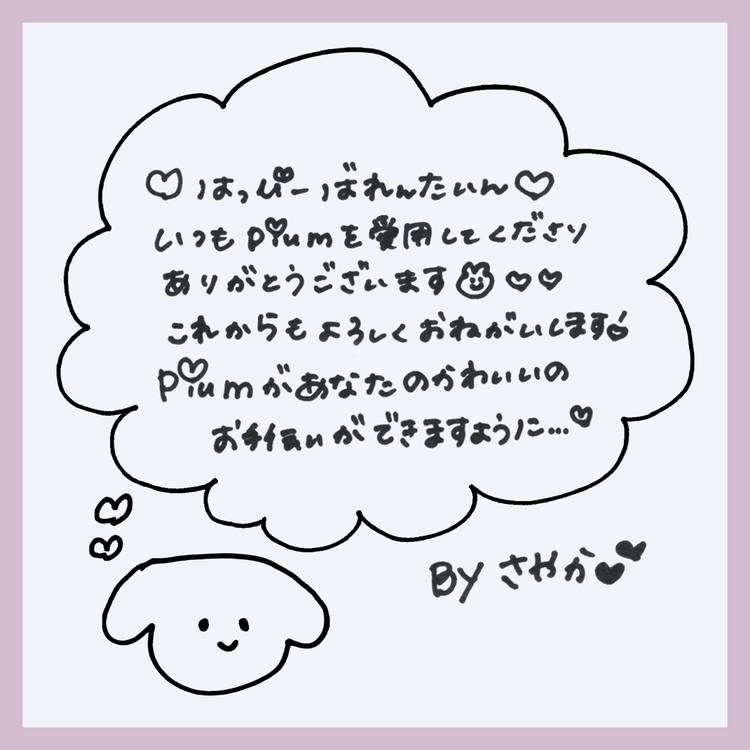 ♡はっぴーばれんたいん♡
いつもpiumを愛用してくださり
ありがとうございます🐰♡♡
これからもよろしくおねがいします♡
piumがあなたのかわいいの
お手伝いができますように…♡
By さやか♥♥